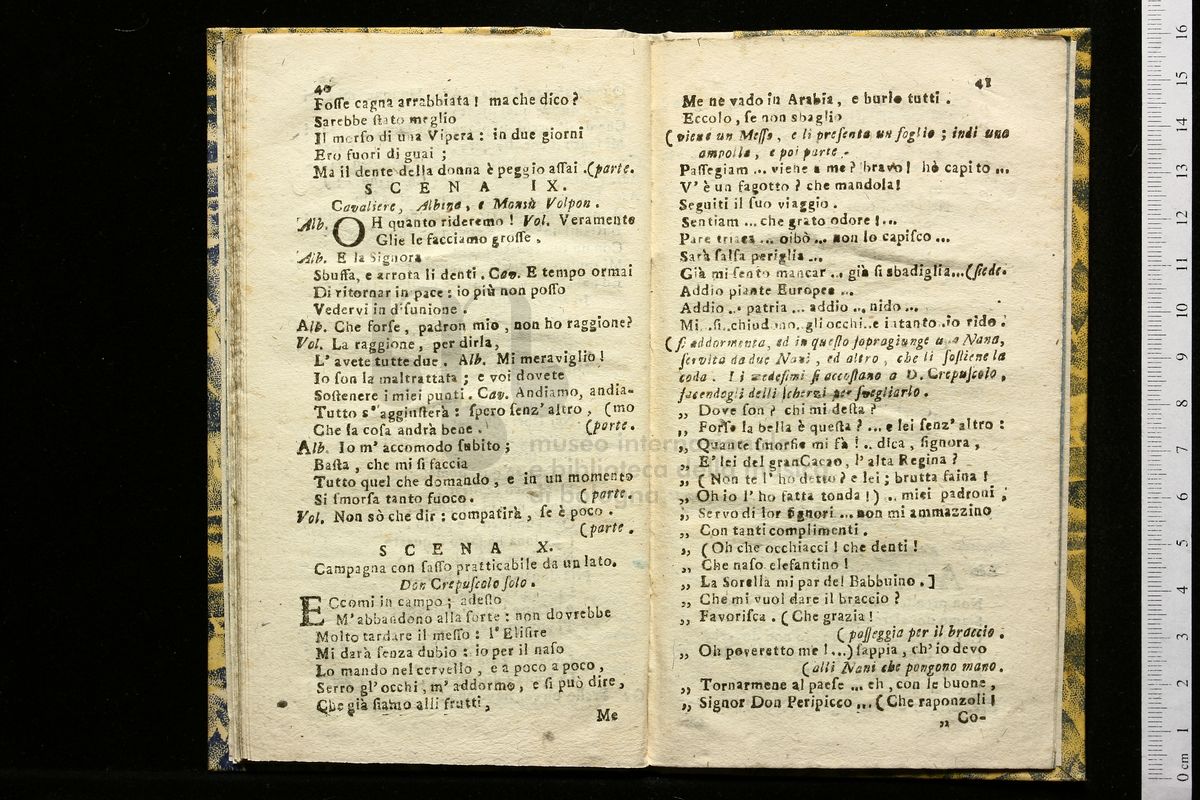 40
Fosse cagna arrabbiata! ma che dico?
Sarebbe stato meglio
Il morso di una Vipera: in due giorni
Ero fuori di guai;
Ma il dente della donna è peggio assai.(parte.
SCENA IX.
Cavaliere, Albina, e Monsù Volpon.
Alb. OH quanto rideremo! Vol. Veramente
Glie le facciamo grosse,
Alb. E la Signora
Sbuffa, e arrota li denti. Cav. E tempo ormai
Di ritornar in pace: io più non posso
Vedervi in d'sunione.
Alb. Che forse, padron mio, non ho raggione?
Vol. La raggione, per dirla,
L' avete tutte due. Alb. Mi meraviglio!
Io son la maltrattata; e voi dovete
Sostenere i miei punti. Cav. Andiamo, andia-
Tutto s' aggiusterà: spero senz' altro, (mo
Che la cosa andrà bene. (parte.
Alb. Io m' accomodo subito;
Basta, che mi si faccia
Tutto quel che domando, e in un momento
Si smorsa tanto fuoco. (parte.
Vol. Non sò che dir: compatirà, se è poco.
(parte.
SCENA X.
Campagna con sasso pratticabile da un lato.
Don Crepuscolo solo.
ECcomi in campo; adesso
M' abbandono alla sorte: non dovrebbe
Molto tardare il messo: l' Elisire
Mi darà senza dubio: io per il naso
Lo mando nel cervello, e a poco a poco,
Serro gl' occhi, m' addormo, e si può dire,
Che già siamo alli frutti,
Me
41
Me ne vado in Arabia, e burlo tutti.
Eccolo, se non sbaglio
(viene un Messo, e li presenta un foglio; indi una
ampolla, e poi parte.
Passegiam ... viene a me? bravo! hò capito ...
V' è un fagotto? che mandola!
Seguiti il suo viaggio.
Sentiam ... che grato odore!...
Pare triaca ... oibò ... non lo capisco ...
Sarà salsa periglia ...
Già mi sento mancar ... già si sbadiglia...(siede.
Addio piante Europee ...
Addio ... patria ... addio ... nido ...
Mi..si..chiudono..gli occhi..e intanto..io rido.
(si addormenta, ed in questo sopragiunge una Nana,
servita da due Nani, ed altro, che li sostiene la
coda. I i medesimi si accostano a D. Crepuscolo,
facendogli delli scherzi per svegliarlo.
„ Dove son? chi mi desta?
„ Forse la bella è questa? ... e lei senz' altro:
„ Quante smorfie mi fà! .. dica, signora,
„ E' lei del gran Cacao, l' alta Regina?
„ (Non te l' ho detto? e lei; brutta faina!
„ Oh io l' ho fatta tonda!) .. miei padroni,
„ Servo di lor signori ... non mi ammazzino
„ Con tanti complimenti.
„ (Oh che occhiacci! che denti!
„ Che naso elefantino!
„ La Sorella mi par del Babbuino.]
„ Che mi vuol dare il braccio?
„ Favorisca. (Che grazia!
(passeggia per il braccio.
„ Oh poveretto me!...) sappia, ch' io devo
(alli Nani che pongono mano.
„ Tornarmene al paese ... eh, con le buone,
„ Signor Don Peripicco ... (Che raponzoli!
„ Co-
museo internazionale
e biblioteca della musica
di bologna
16
15
14
13
12
11
10
9
8
7
6
5
4
3
2
1
0 cm